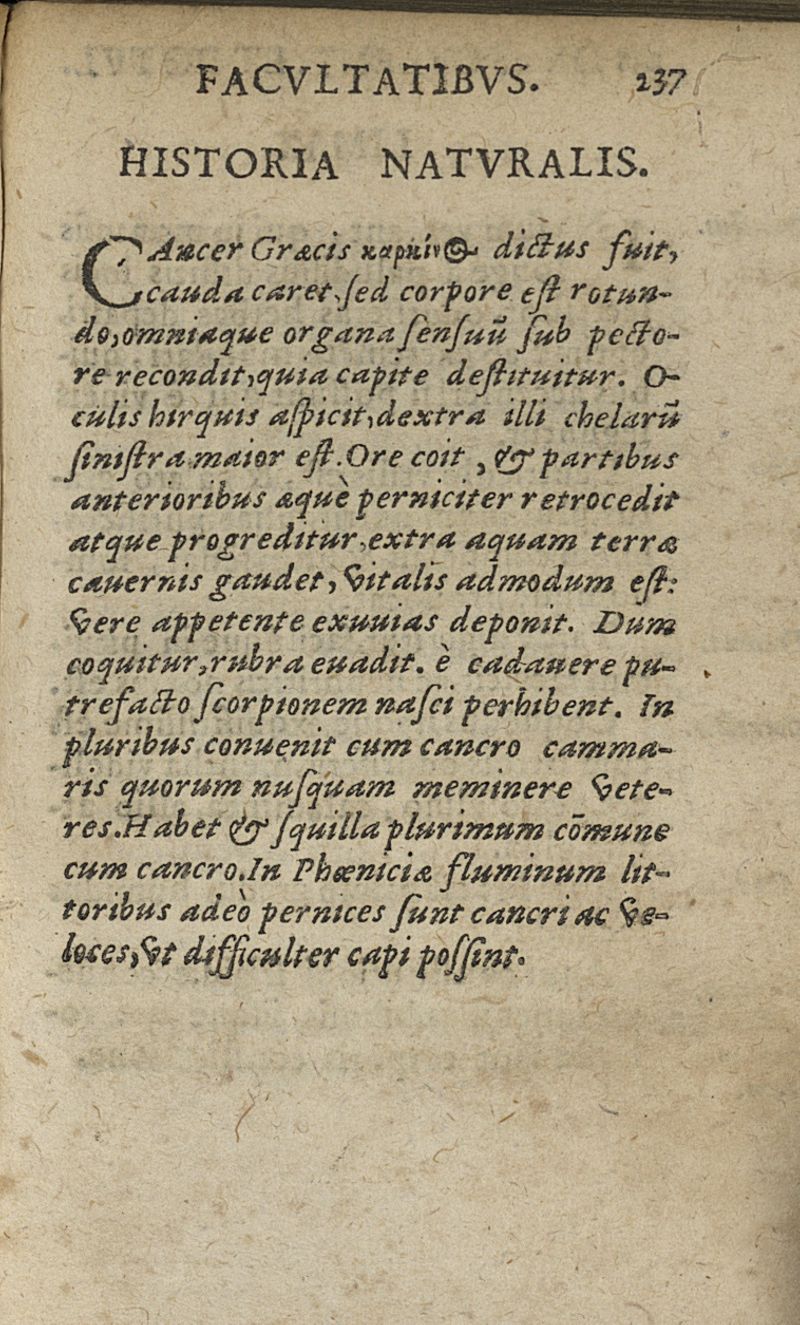 FACVLTATIBVS. 237
HISTORIA NATVRALIS.
CAncer Græcis καρκίνος dictus fuit,
cauda caret, sed corpore est rotun-
do, omniaque organa sensuū sub pecto-
re recondit, quia capite destituitur. O-
culis hirquis aspicit, dextra illi chelarū
sinistra maior est. Ore coit, & partibus
anterioribus æquè perniciter retrocedit
atque progreditur, extra aquam terræ
cauernis gaudet, vitalis admodum est:
vere appetente exuuias deponit. Dum
coquitur, rubra euadit. è cadauere pu-
trefacto scorpionem nasci perhibent. In
pluribus conuenit cum cancro camma-
ris quorum nusquam meminere vete-
res. Habet & squilla plurimum cōmune
cum cancro. In Phœniciæ fluminum lit-
toribus adeò pernices sunt cancri ac ve-
loces, vt difficulter capi possint.